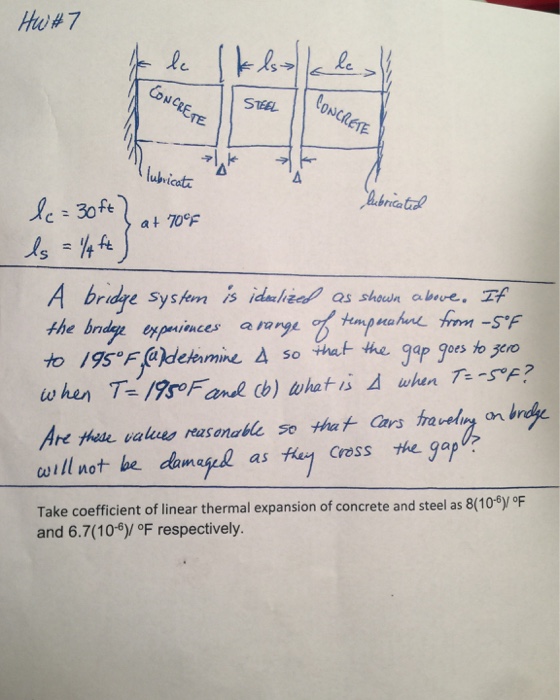 HW#7
lc ls lc
CONCRETE STEEL CONCRETE
Δ Δ
lubricate lubricated
lc = 30 ft } at 70°F
ls = 1/4 ft
A bridge system is idealized as shown above. If
the bridge experiences a range of temperature from -5°F
to 195°F, (a) determine Δ so that the gap goes to zero
when T= 195°F and (b) what is Δ when T= -5°F?
Are these values reasonable so that cars traveling on bridge
will not be damaged as they cross the gap?
Take coefficient of linear thermal expansion of concrete and steel as 8(10⁻⁶)/ ºF
and 6.7(10⁻⁶)/ ºF respectively.